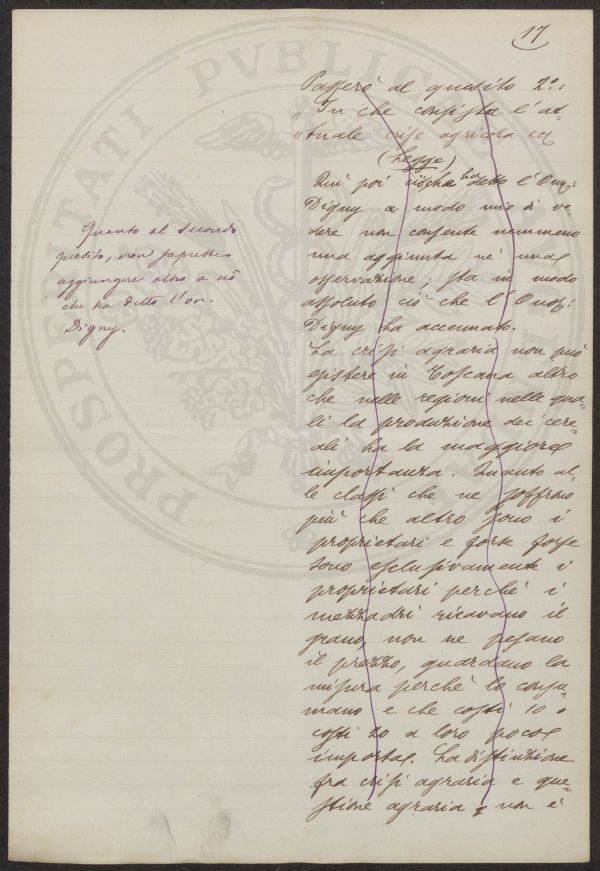 17
Passerò al quesito 2º:
"In che consista l'at-
"tuale crise agricola ec
(Legge)
Qui poi ciò che ha detto l'Onor:
Digny a modo mio di ve-
dere non consente nemmeno
una aggiunta nè una
osservazione; sta in modo
assoluto ciò che l'Onor:
Digny ha accennato.
La crisi agraria non può
esistere in Toscana altro
che nelle regioni nelle qua-
li la produzione dei cere-
ali ha la maggiore
importanza. Quanto al-
le classi che ne soffrono
più che altro sono i
proprietari e forse forse
sono esclusivamente i
proprietari perchè i
mezzadri ricavano il
grano, non ne pesano
il prezzo, guardano la
misura perchè lo consu-
mano e che costi 10 o
costi 20 a loro poco
importa. La distinzione
fra crisi agraria e que-
stione agraria non è
Quanto al secondo
quesito, non saprebbe
aggiungere altro a ciò
che ha detto l'on.
Digny.
PROSPERITATI PUBLICAE